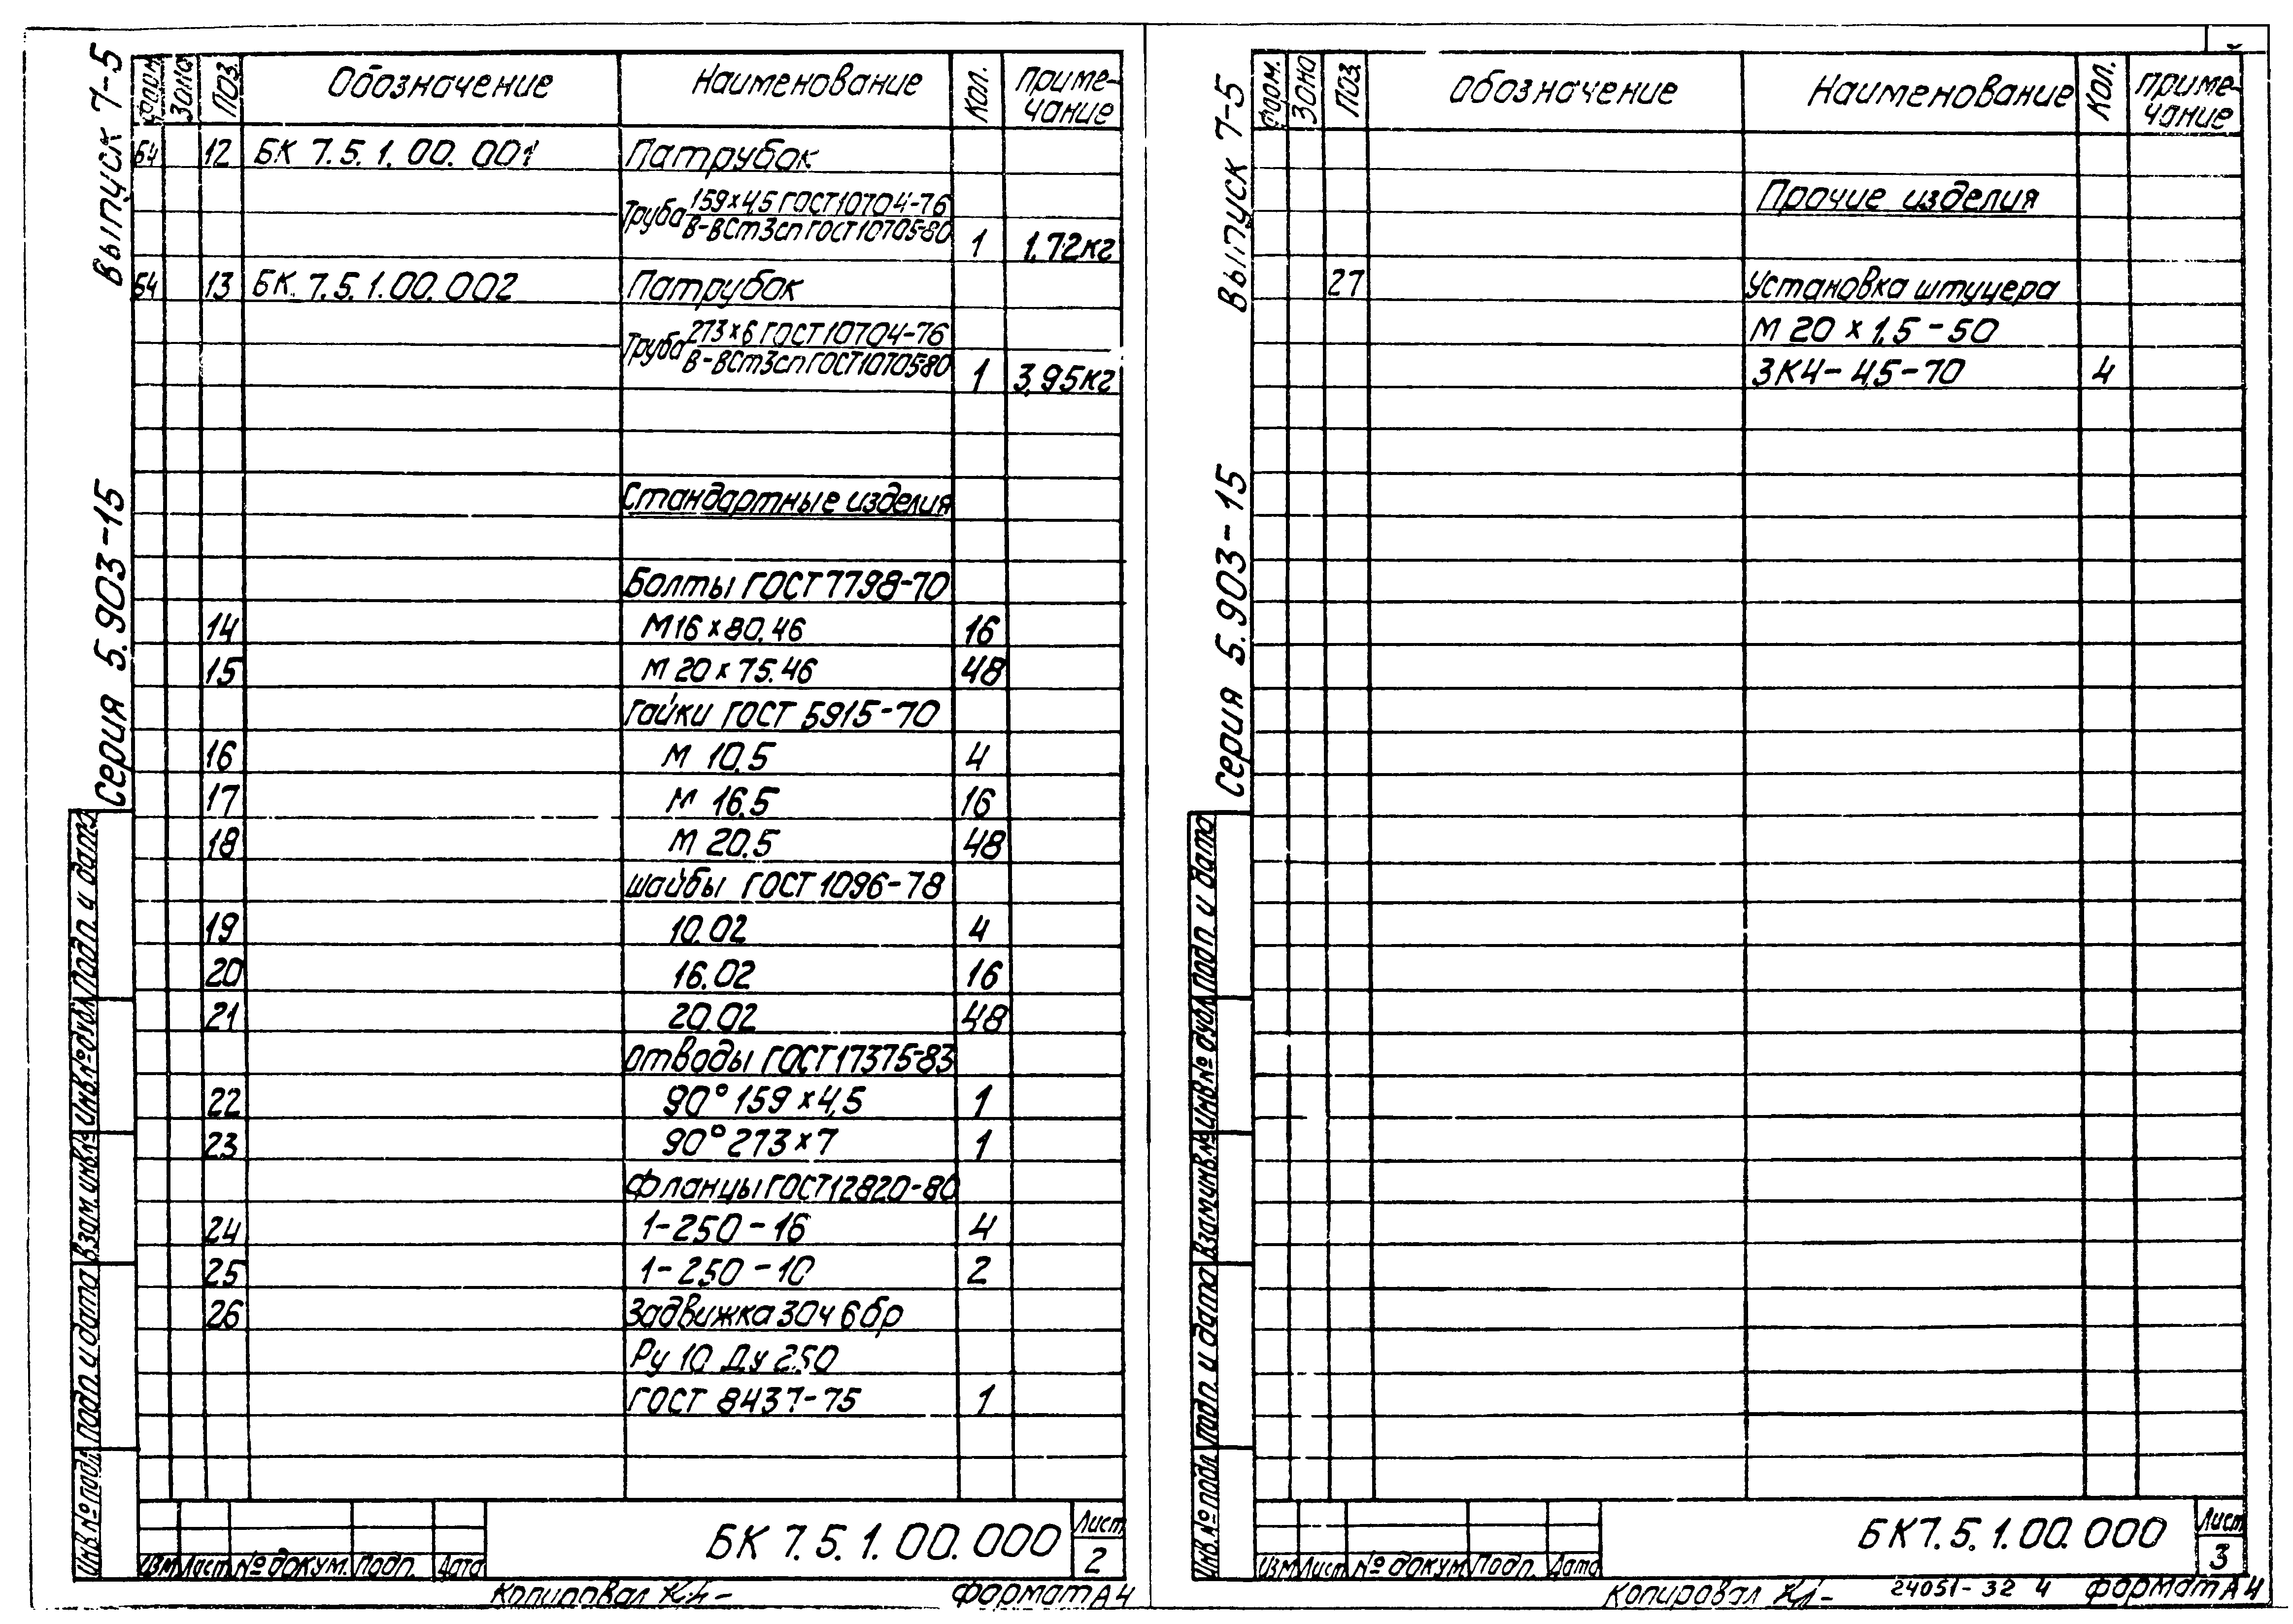 Выпуск 7-5
Серия 5.903-15
Форм. Зона Поз. Обозначение Наименование Кол. Приме-
чание
БЧ 12 БК 7.5.1.00.001 Патрубок
Труба 159×4,5 ГОСТ 10704-76
В-ВСт3сп ГОСТ 10705-80 1 1,72кг
БЧ 13 БК.7.5.1.00.002 Патрубок
Труба 273×6 ГОСТ 10704-76
В-ВСт3сп ГОСТ 10705-80 1 3,95кг
Стандартные изделия
Болты ГОСТ 7798-70
14 М16×80.46 16
15 М 20×75.46 48
Гайки ГОСТ 5915-70
16 М 10.5 4
17 М 16.5 16
18 М 20.5 48
Шайбы ГОСТ 1096-78
19 10.02 4
20 16.02 16
21 20.02 48
Отводы ГОСТ 17375-83
22 90° 159×4,5 1
23 90° 273×7 1
Фланцы ГОСТ 12820-80
24 1-250-16 4
25 1-250-10 2
26 Задвижка 30ч6бр
Ру 10 Ду 250
ГОСТ 8437-75 1
Инв.№ подл. Подп. и дата Взам.инв.№ Инв.№ дубл. Подп. и дата
Изм Лист № докум. Подп. Дата
БК 7.5.1.00.000
Лист
2
Копировал
Формат А4
Выпуск 7-5
Серия 5.903-15
Форм. Зона Поз. Обозначение Наименование Кол. Приме-
чание
Прочие изделия
27 Установка штуцера
М 20×1,5-50
ЗК4-4,5-70 4
Инв.№ подл. Подп. и дата Взам.инв.№ Инв.№ дубл. Подп. и дата
Изм Лист № докум Подп. Дата
БК 7.5.1.00.000
Лист
3
Копировал
24051-32 4
Формат А4